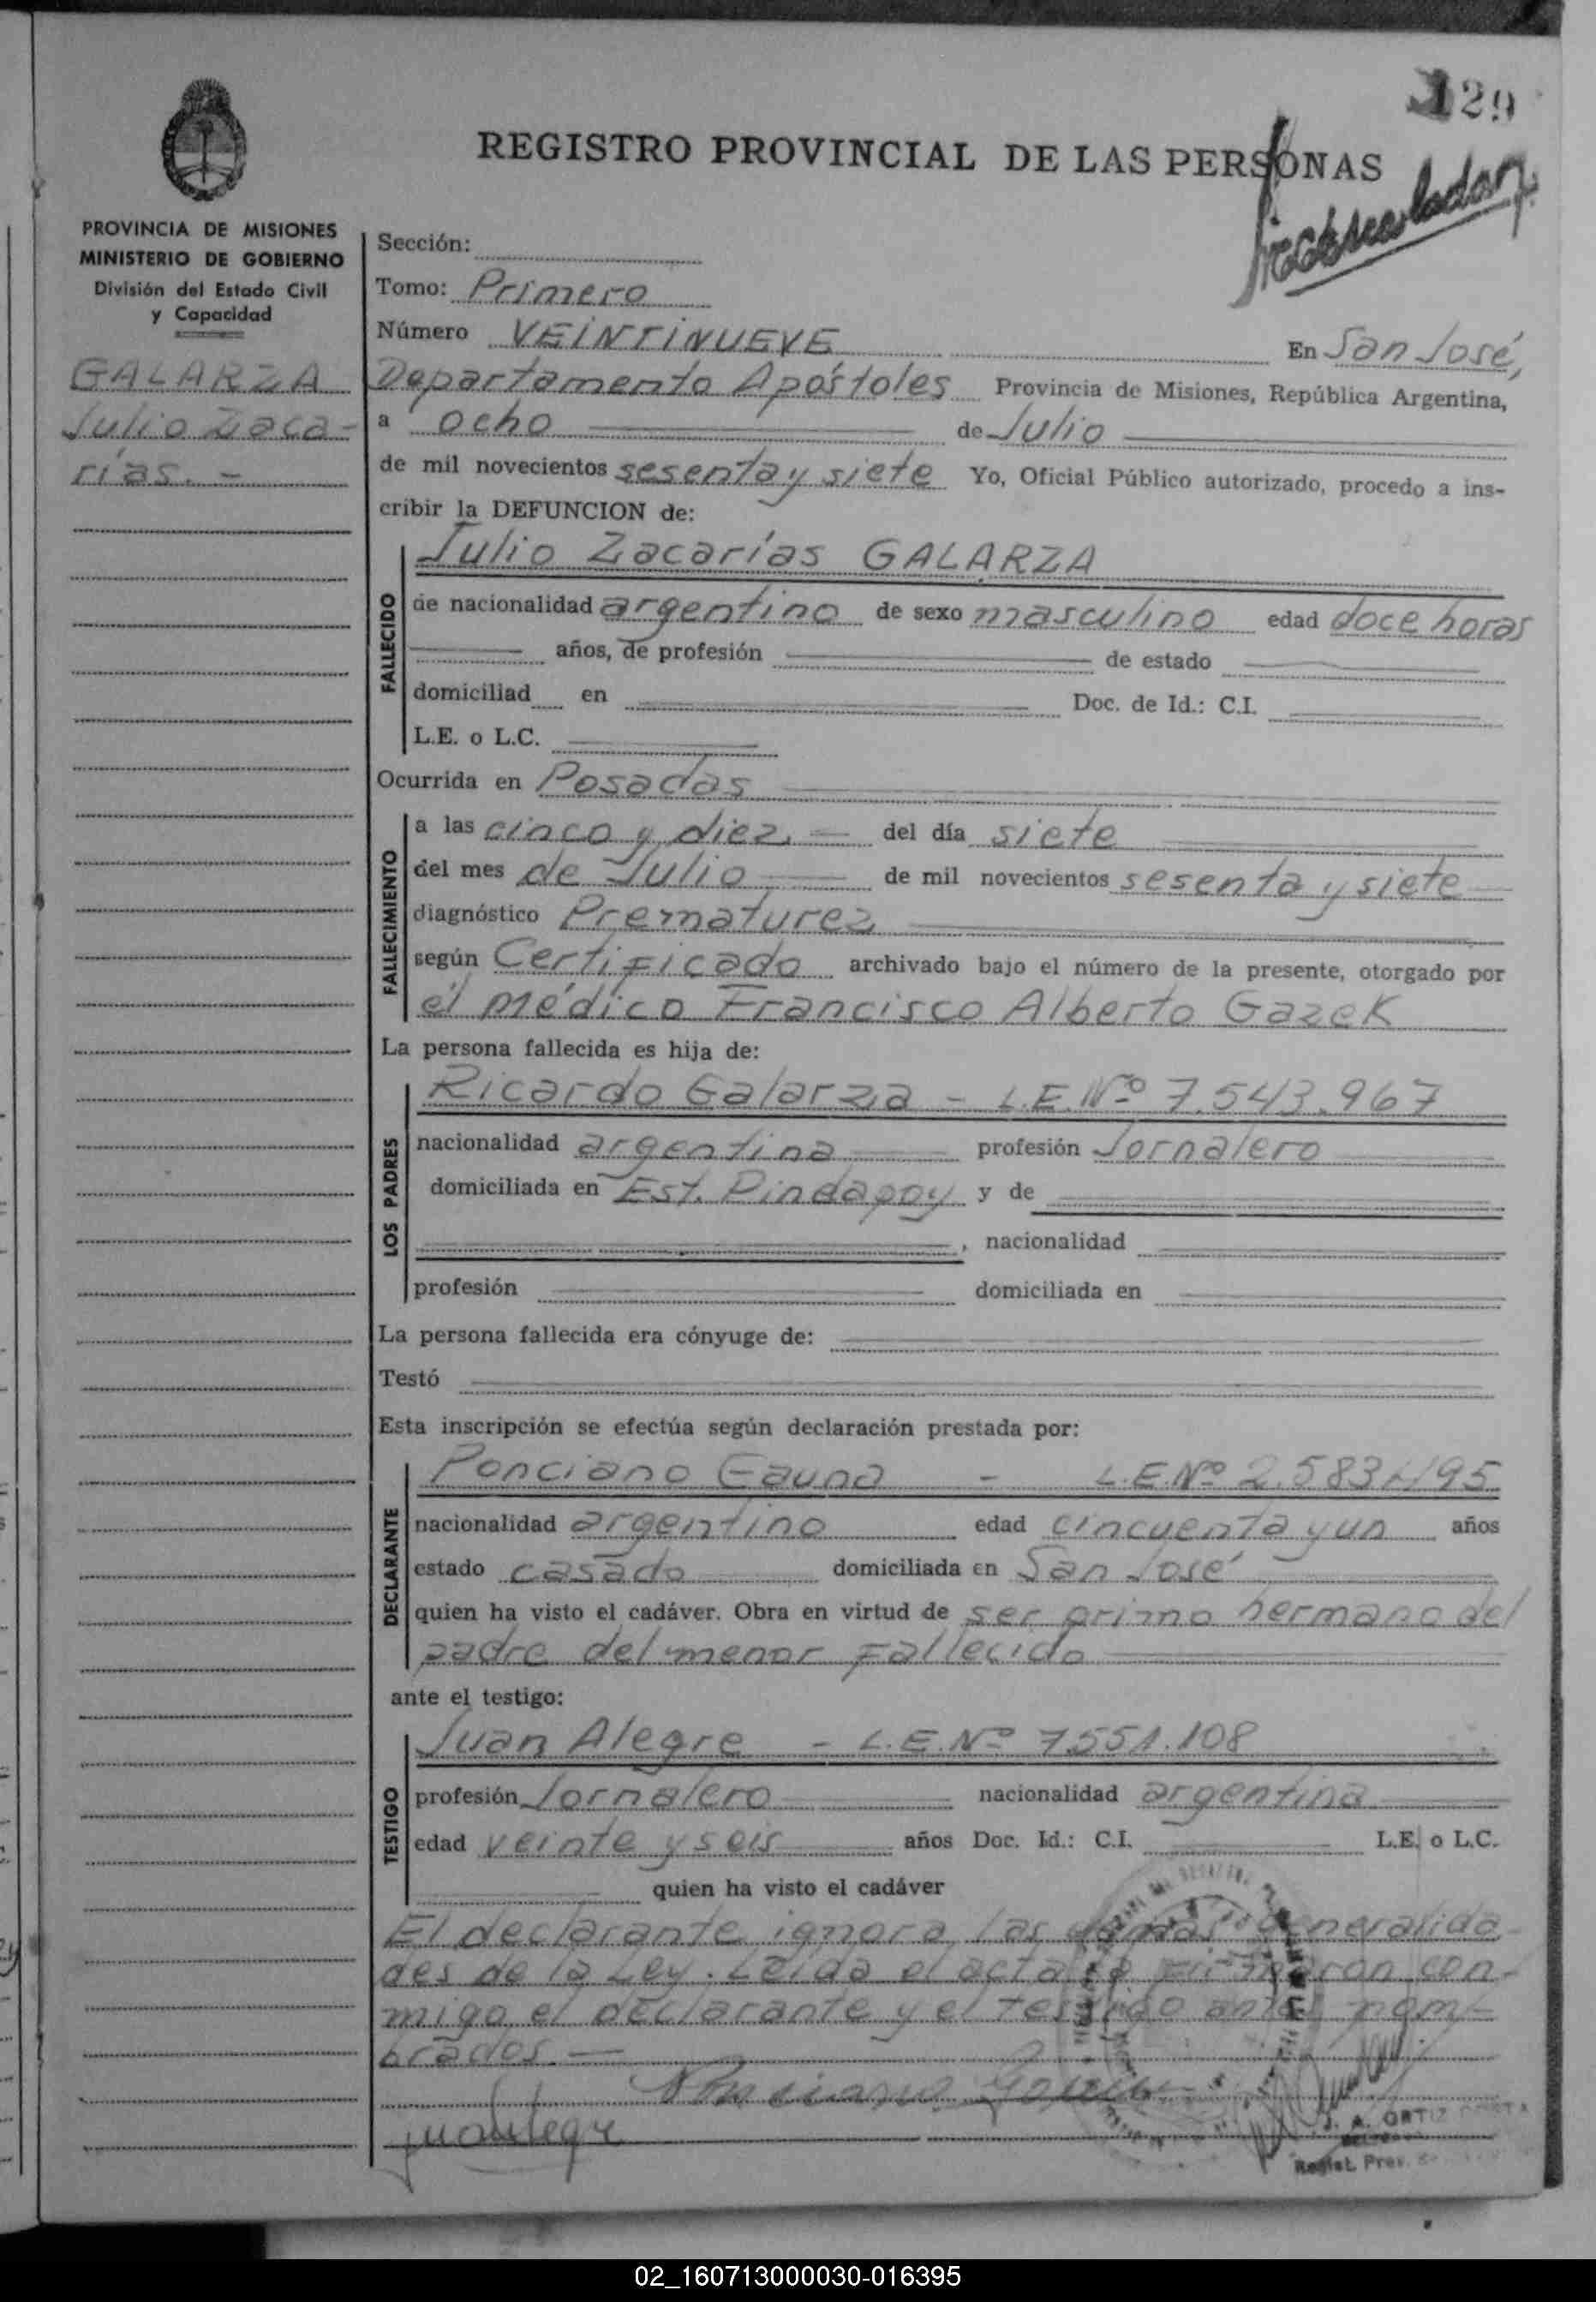 129
REGISTRO PROVINCIAL DE LAS PERSONAS
PROVINCIA DE MISIONES
MINISTERIO DE GOBIERNO
División del Estado Civil
y Capacidad
GALARZA
Julio Zaca-
rías. -
Sección:
Tomo: Primero
Número VEINTINUEVE En San José,
Departamento Apóstoles Provincia de Misiones, República Argentina,
a ocho de Julio
de mil novecientos sesenta y siete Yo, Oficial Público autorizado, procedo a ins-
cribir la DEFUNCION de:
Julio Zacarías GALARZA
FALLECIDO
de nacionalidad argentino de sexo masculino edad doce horas
años, de profesión de estado
domiciliad en Doc. de Id.: C.I.
L.E. o L.C.
Ocurrida en Posadas
FALLECIMIENTO
a las cinco y diez. - del día siete
del mes de Julio de mil novecientos sesenta y siete
diagnóstico Prematurez
según Certificado archivado bajo el número de la presente, otorgado por
el médico Francisco Alberto Gazek
La persona fallecida es hija de:
LOS PADRES
Ricardo Galarza - L.E.Nº 7.543.967
nacionalidad argentina profesión Jornalero
domiciliada en Est. Pindapoy y de
, nacionalidad
profesión domiciliada en
La persona fallecida era cónyuge de:
Testó
Esta inscripción se efectúa según declaración prestada por:
DECLARANTE
Ponciano Gauna - L.E.Nº
nacionalidad argentino edad cincuenta y un años
estado casado domiciliada en San José
quien ha visto el cadáver. Obra en virtud de ser primo hermano del
padre del menor fallecido
ante el testigo:
TESTIGO
Juan Alegre - L.E.Nº 7551.108
profesión Jornalero nacionalidad argentina
edad veinte y seis años Doc. Id.: C.I. L.E. o L.C.
quien ha visto el cadáver
El declarante ignora las demás generalida-
des de la Ley. Leída el acta la firmaron con-
migo el declarante y el testigo antes nom-
brados. -
J. A. ORTIZ
Regist. Prov.
02_160713000030-016395